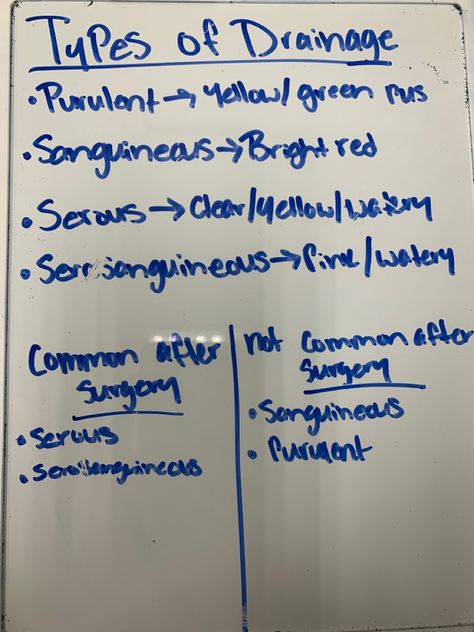 Types of Drainage
• Purulent → Yellow/green pus
• Sanguineous → Bright red
• Serous → Clear/Yellow/watery
• Serosanguineous → Pink/watery
Common after
Surgery
• Serous
• Serosanguineous
not Common after
Surgery
• Sanguineous
• Purulent